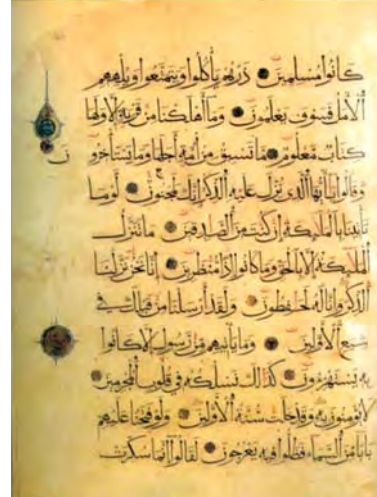 كانوا مسلمين ذرهم يأكلوا ويتمتعوا ويلههم
الأمل فسوف يعلمون وما أهلكنا من قرية إلا ولها
كتاب معلوم ما تسبق من أمة أجلها وما يستأخرو
ن
وقالوا يا أيها الذي نزل عليه الذكر إنك لمجنون لو ما
تأتينا بالملئكة إن كنت من الصدقين ما ننزل
الملئكة إلا بالحق وما كانوا إذا منظرين إنا نحن نزلنا
الذكر وإنا له لحفظون ولقد أرسلنا من قبلك في
شيع الأولين وما يأتيهم من رسول إلا كانوا
به يستهزءون كذلك نسلكه في قلوب المجرمين
لا يؤمنون به وقد خلت سنة الأولين ولو فتحنا عليهم
بابا من السماء فظلوا فيه يعرجون لقالوا إنما سكرت